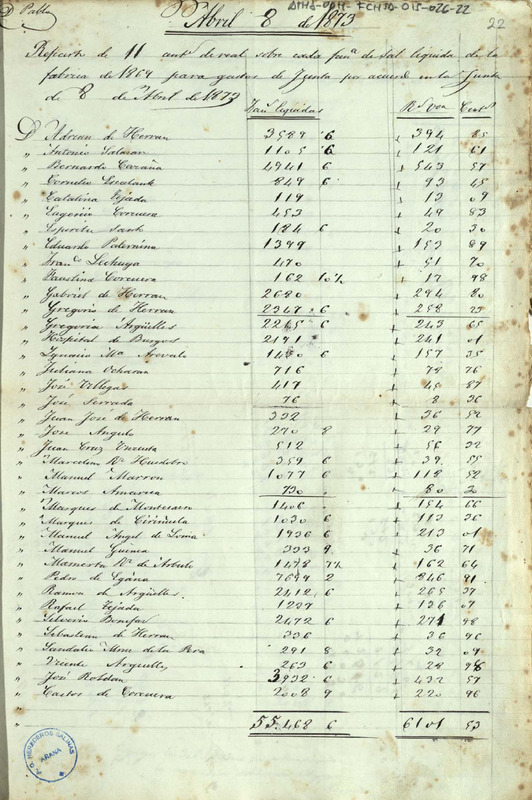 D. Pablo
Abril 8 de 1873
ATHA-DAH-FCH30-015-026-22
22
Reparto de 11 cent.s de real sobre cada fan.a de sal liquida de la
fabrica de 1864 para gastos de Junta por acuerdo en la Junta
de 8 de Abril de 1873
Fan.s liquidas R.s von Cent.s
D. Adrian de Herran 3589 6 394 85
" Antonio Salazar 1105 6 121 61
" Bernardo 4941 6 543 57
" Cornelio Escalante 849 6 93 45
" Catalina Tejada 119 13 09
" Eugenio Corcuera 453 49 83
" Espiritu Santo 184 6 20 30
" Eduardo Paternina 1399 153 89
" Fran.co Lechuga 470 51 70
" Faustino Corcuera 162 10½ 17 98
" Gabriel de Herran 2680 294 80
" Gregorio de Herran 2347 6 258 23
" Gregoria Argüelles 2215 6 243 65
" Hospital de Burgos 2191 241 01
" Ygnacio M.a Arevalo 1430 6 157 35
" Juliana Ocharan 716 78 76
" José Villegas 417 45 87
" José Serrada 76 8 36
" Juan José de Herran 332 36 52
" José Angulo 270 8 29 77
" Juan Cruz 512 56 32
" Marcelina R.z Huidobro 359 6 39 55
" Manuel Marron 1077 6 118 52
" Marcos Amarica 730 80 30
" Marques de Montesacro 1406 154 66
" Marques de Ciriñuela 1030 6 113 36
" Manuel Angel de Loma 1936 6 213 01
" Manuel Guinea 333 9 36 71
" Mamerta R.z de Arbulo 1478 7½ 162 64
" Pedro de Egaña 7699 2 846 91
" Ramon de Argüelles 2412 6 265 37
" Rafael Tejada 1237 136 07
" Silverio Bonifaz 2472 6 271 98
" Sebastian de Herran 336 36 96
" Sandalio de la Pera 291 8 32 09
" Vicente Argüelles 263 6 28 98
" José Roldan 3932 6 432 57
" Castor de Corcuera 2008 9 220 96
"
" 55.468 6 6101 53
HEREDEROS SALINAS
AÑANA